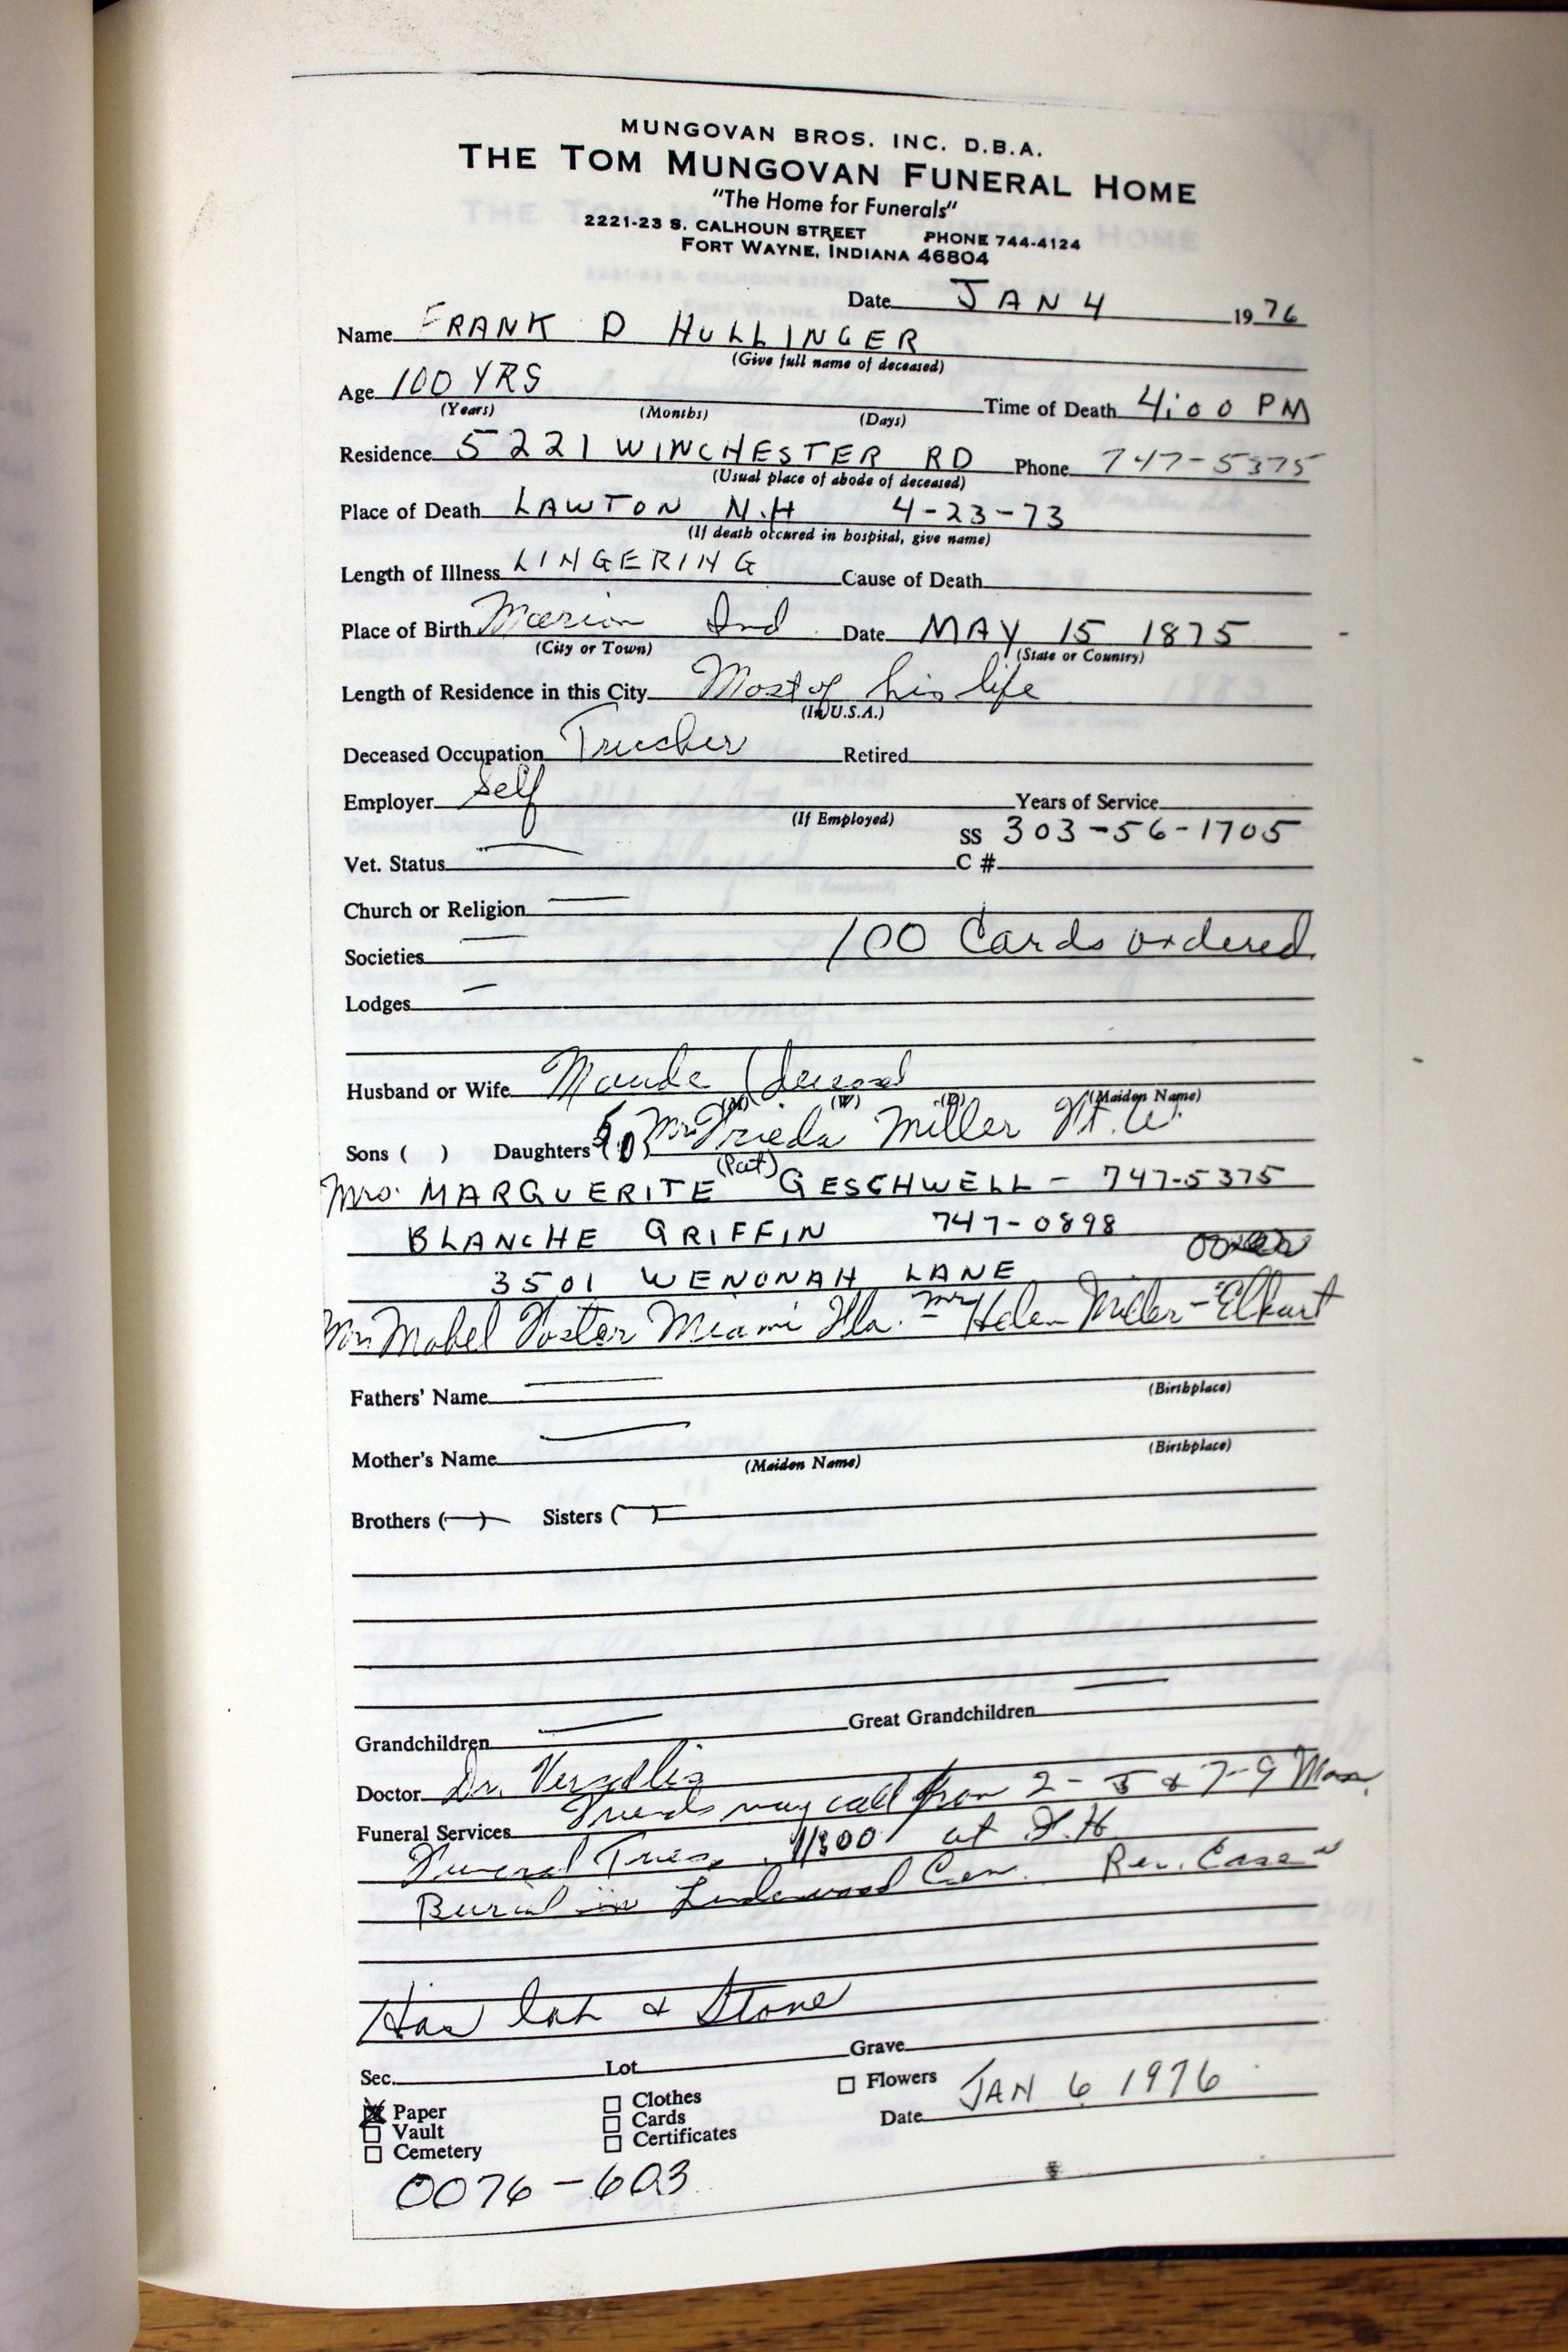 MUNGOVAN BROS. INC. D.B.A.
THE TOM MUNGOVAN FUNERAL HOME
"The Home for Funerals"
2221-23 S. CALHOUN STREET PHONE 744-4124
FORT WAYNE, INDIANA 46804
Date JAN 4 1976
Name FRANK D HULLINGER
(Give full name of deceased)
Age 100 YRS Time of Death 4:00 PM
(Years) (Months) (Days)
Residence 5221 WINCHESTER RD Phone 747-5375
(Usual place of abode of deceased)
Place of Death LAWTON N.H 4-23-73
(If death occured in hospital, give name)
Length of Illness LINGERING Cause of Death
Place of Birth Marion Ind Date MAY 15 1875
(City or Town) (State or Country)
Length of Residence in this City Most of his life
(In U.S.A.)
Deceased Occupation Trucker Retired
Employer Self Years of Service
(If Employed)
SS 303-56-1705
Vet. Status C #
Church or Religion
Societies 100 Cards ordered
Lodges
Husband or Wife Maude
(M) (W) (D) (Maiden Name)
Sons ( ) Daughters ( ) Mrs Frieda Miller Ft. W.
Mrs. MARGUERITE (Pat) GESCHWELL - 747-5375
BLANCHE GRIFFIN 747-0898
3501 WENONAH LANE
Mrs Mabel Foster Miami Fla. - Mrs Helen Miller - Elkhart
Fathers' Name (Birthplace)
Mother's Name (Birthplace)
(Maiden Name)
Brothers ( ) Sisters ( )
Grandchildren Great Grandchildren
Doctor Dr.
Funeral Services Friends may call from 2-5 & 7-9 Mon.
Funeral Tues. at F.H.
Burial in Lindenwood Cem. Rev. Case
Has lot & Stone
Sec. Lot Grave
Paper Clothes Flowers
Vault Cards Date JAN 6 1976
Cemetery Certificates
0076-603